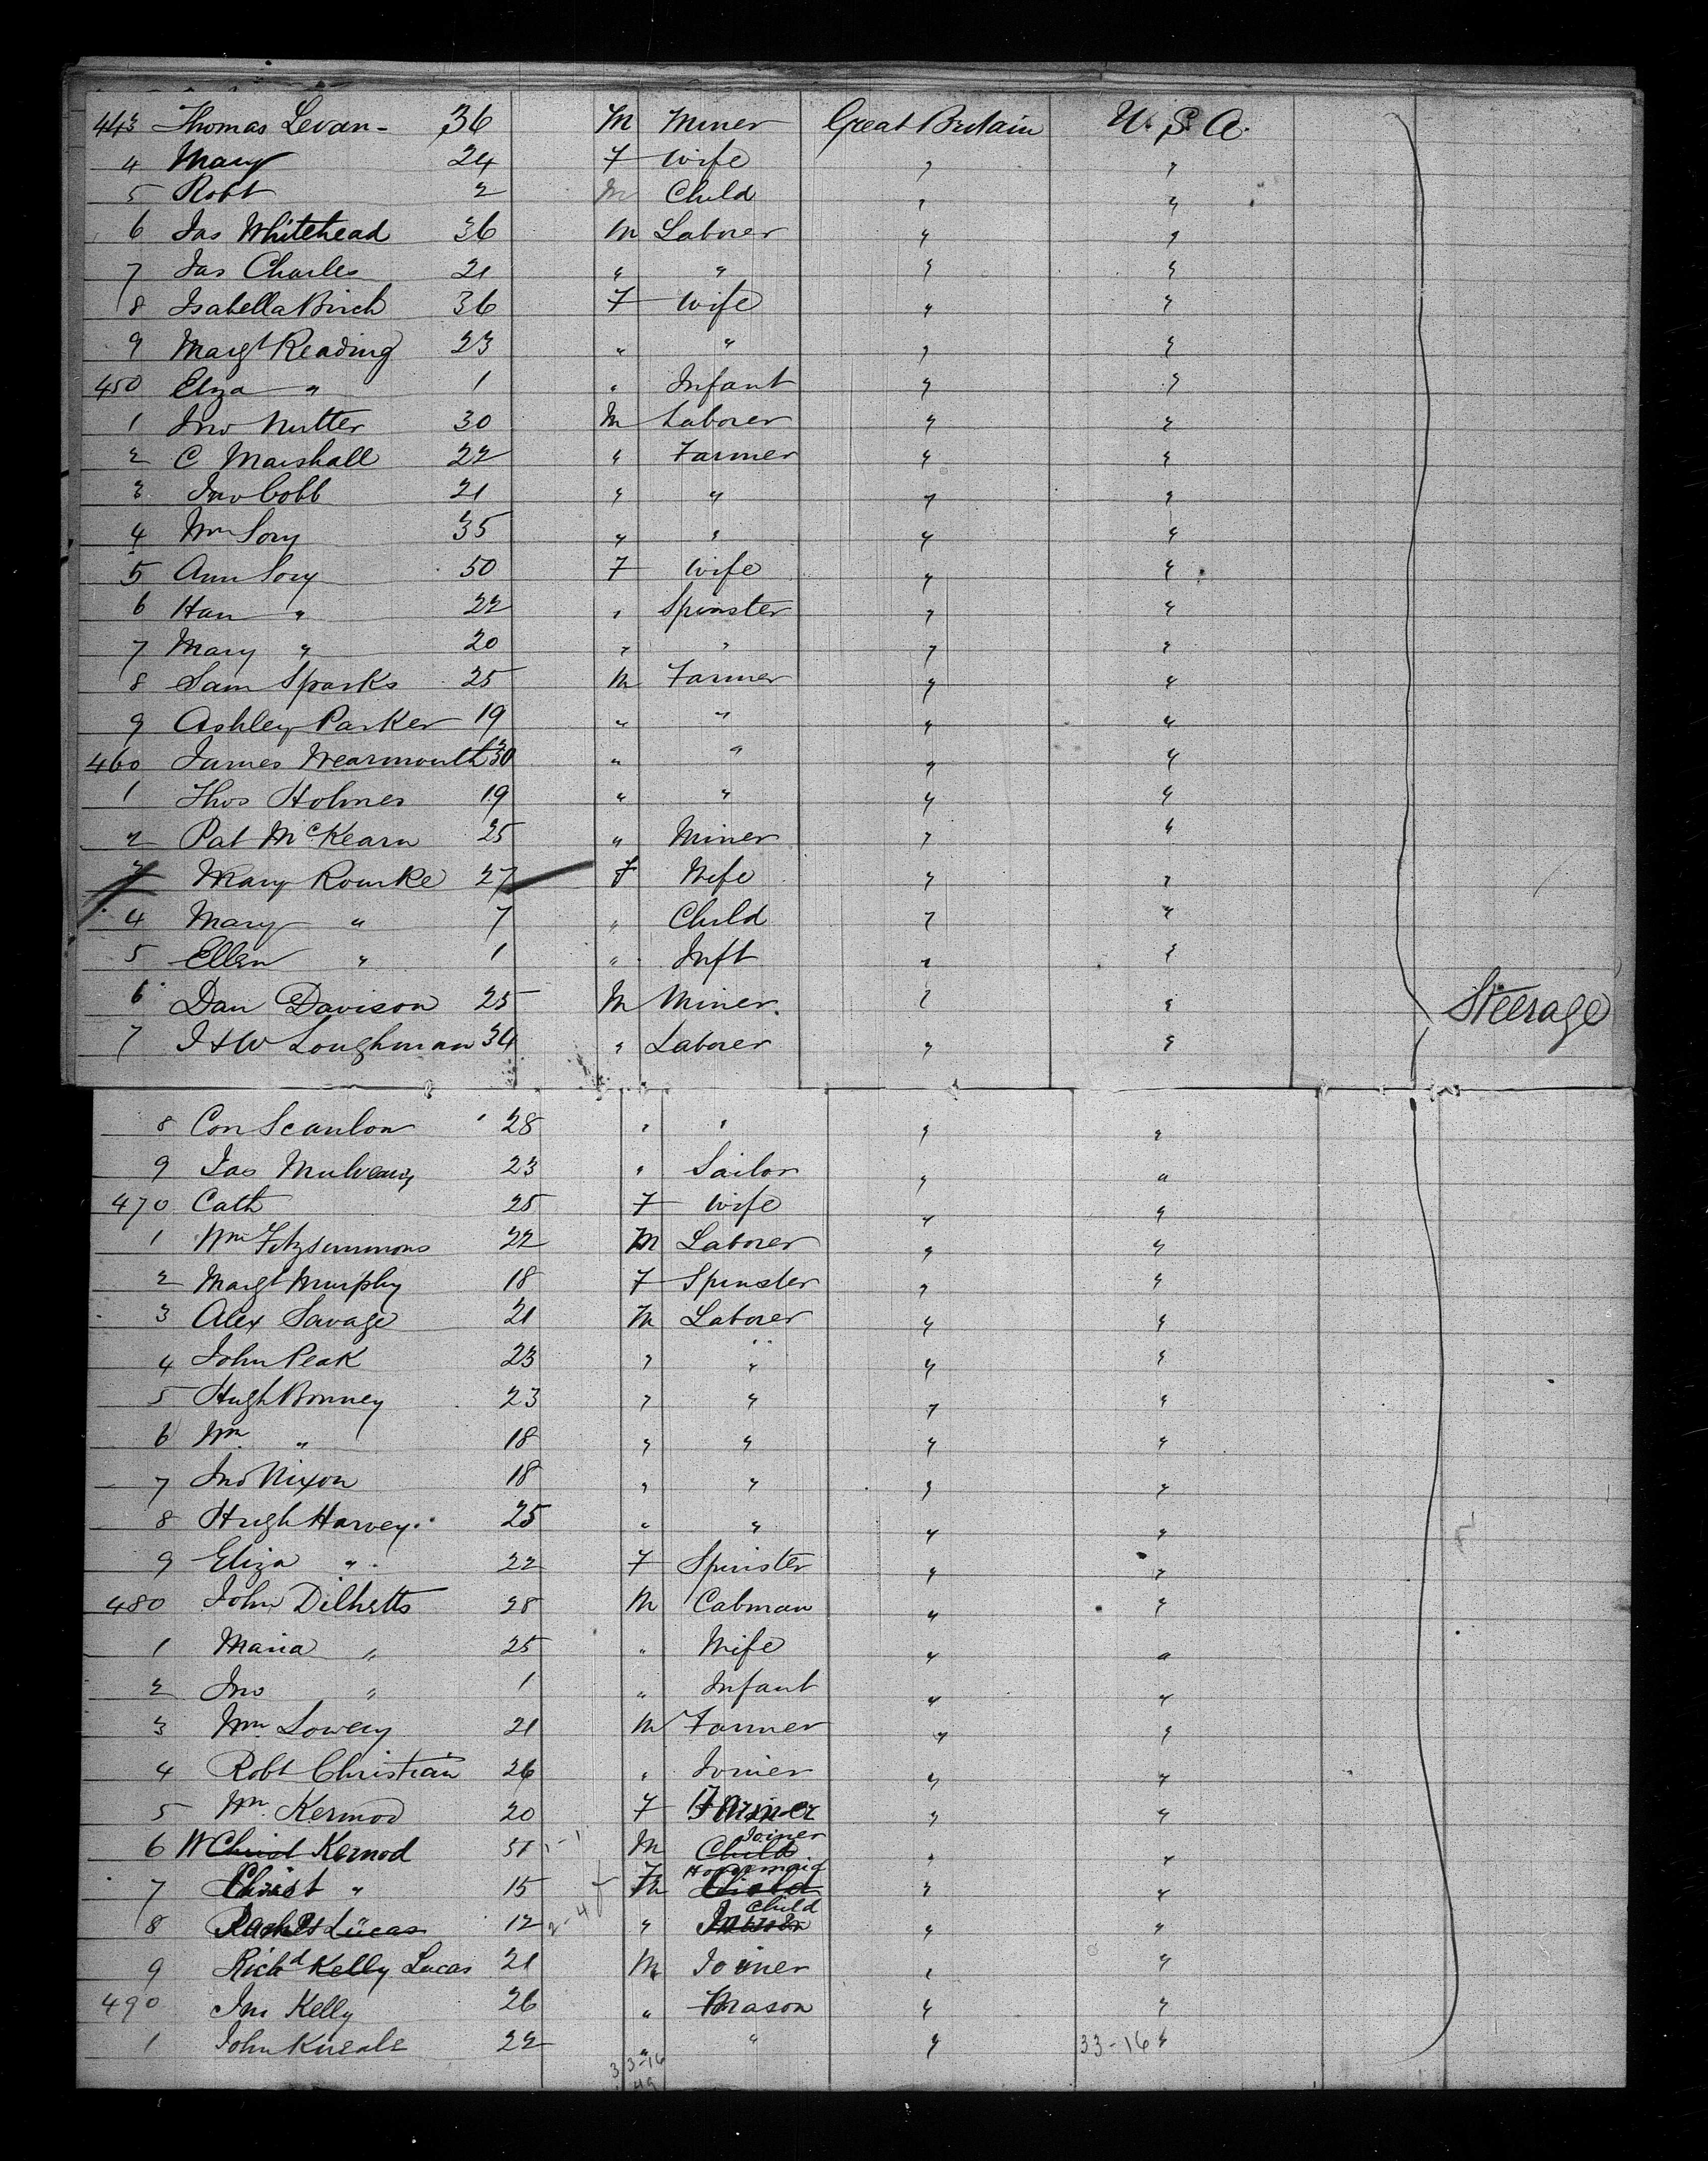 443 Thomas Levan - 36 M Miner Great Britain U.S.A.
4 Mary 24 F Wife " "
5 Robt 2 M Child " "
6 Jas Whitehead 36 M Laborer " "
7 Jas Charles 21 " " " "
8 Isabella Birch 36 F Wife " "
9 Margt Reading 23 " " " "
450 Elza " 1 " Infant " "
1 Jno Nutter 30 M Laborer " "
2 C Marshall 22 " Farmer " "
3 Jno Cobb 21 " " " "
4 Wm Sory 35 " " " "
5 Ann Sory 50 F Wife " "
6 Han " 22 " Spinster " "
7 Mary " 20 " " " "
8 Sam Sparks 25 M Farmer " "
9 Ashley Parker 19 " " " "
460 James Wearmouth 30 " " " "
1 Thos Holmes 19 " " " "
2 Pat McKearn 25 " Miner " "
3 Mary Rourke 27 F Wife " "
4 Mary " 7 " Child " "
5 Ellen " 1 " Inft " "
6 Dan Davison 25 M Miner. " " Steerage
7 J & W Loughman 34 " Laborer " "
8 Con Scanlon 28 " " " "
9 Jas Mulveany 23 " Sailor " "
470 Cath 25 F Wife " "
1 Wm Fitzsimmons 22 M Laborer " "
2 Margt Murphy 18 F Spinster " "
3 Alex Savage 21 M Laborer " "
4 John Peak 23 " " " "
5 Hugh Bonney 23 " " " "
6 Wm " 18 " " " "
7 Jno Nixon 18 " " " "
8 Hugh Harvey 25 " " " "
9 Eliza " 22 F Spinster " "
480 John Dilhetts 28 M Cabman " "
1 Maria " 25 " Wife " "
2 Jno " 1 " Infant " "
3 Wm Lowery 21 M Farmer " "
4 Robt Christian 26 " Joiner " "
5 Wm Kermod 20 F Farmer " "
6 W Christ Kermod M Child Joiner " "
7 Christ " 15 Child Housemaid " "
8 Rachel Lucas 12 2-4 " Child " "
9 Richd Kelly Lucas 21 M Joiner " "
490 Jno Kelly 26 " Mason " "
1 John Kneale 22 " " " 33-16 "
33-16
49